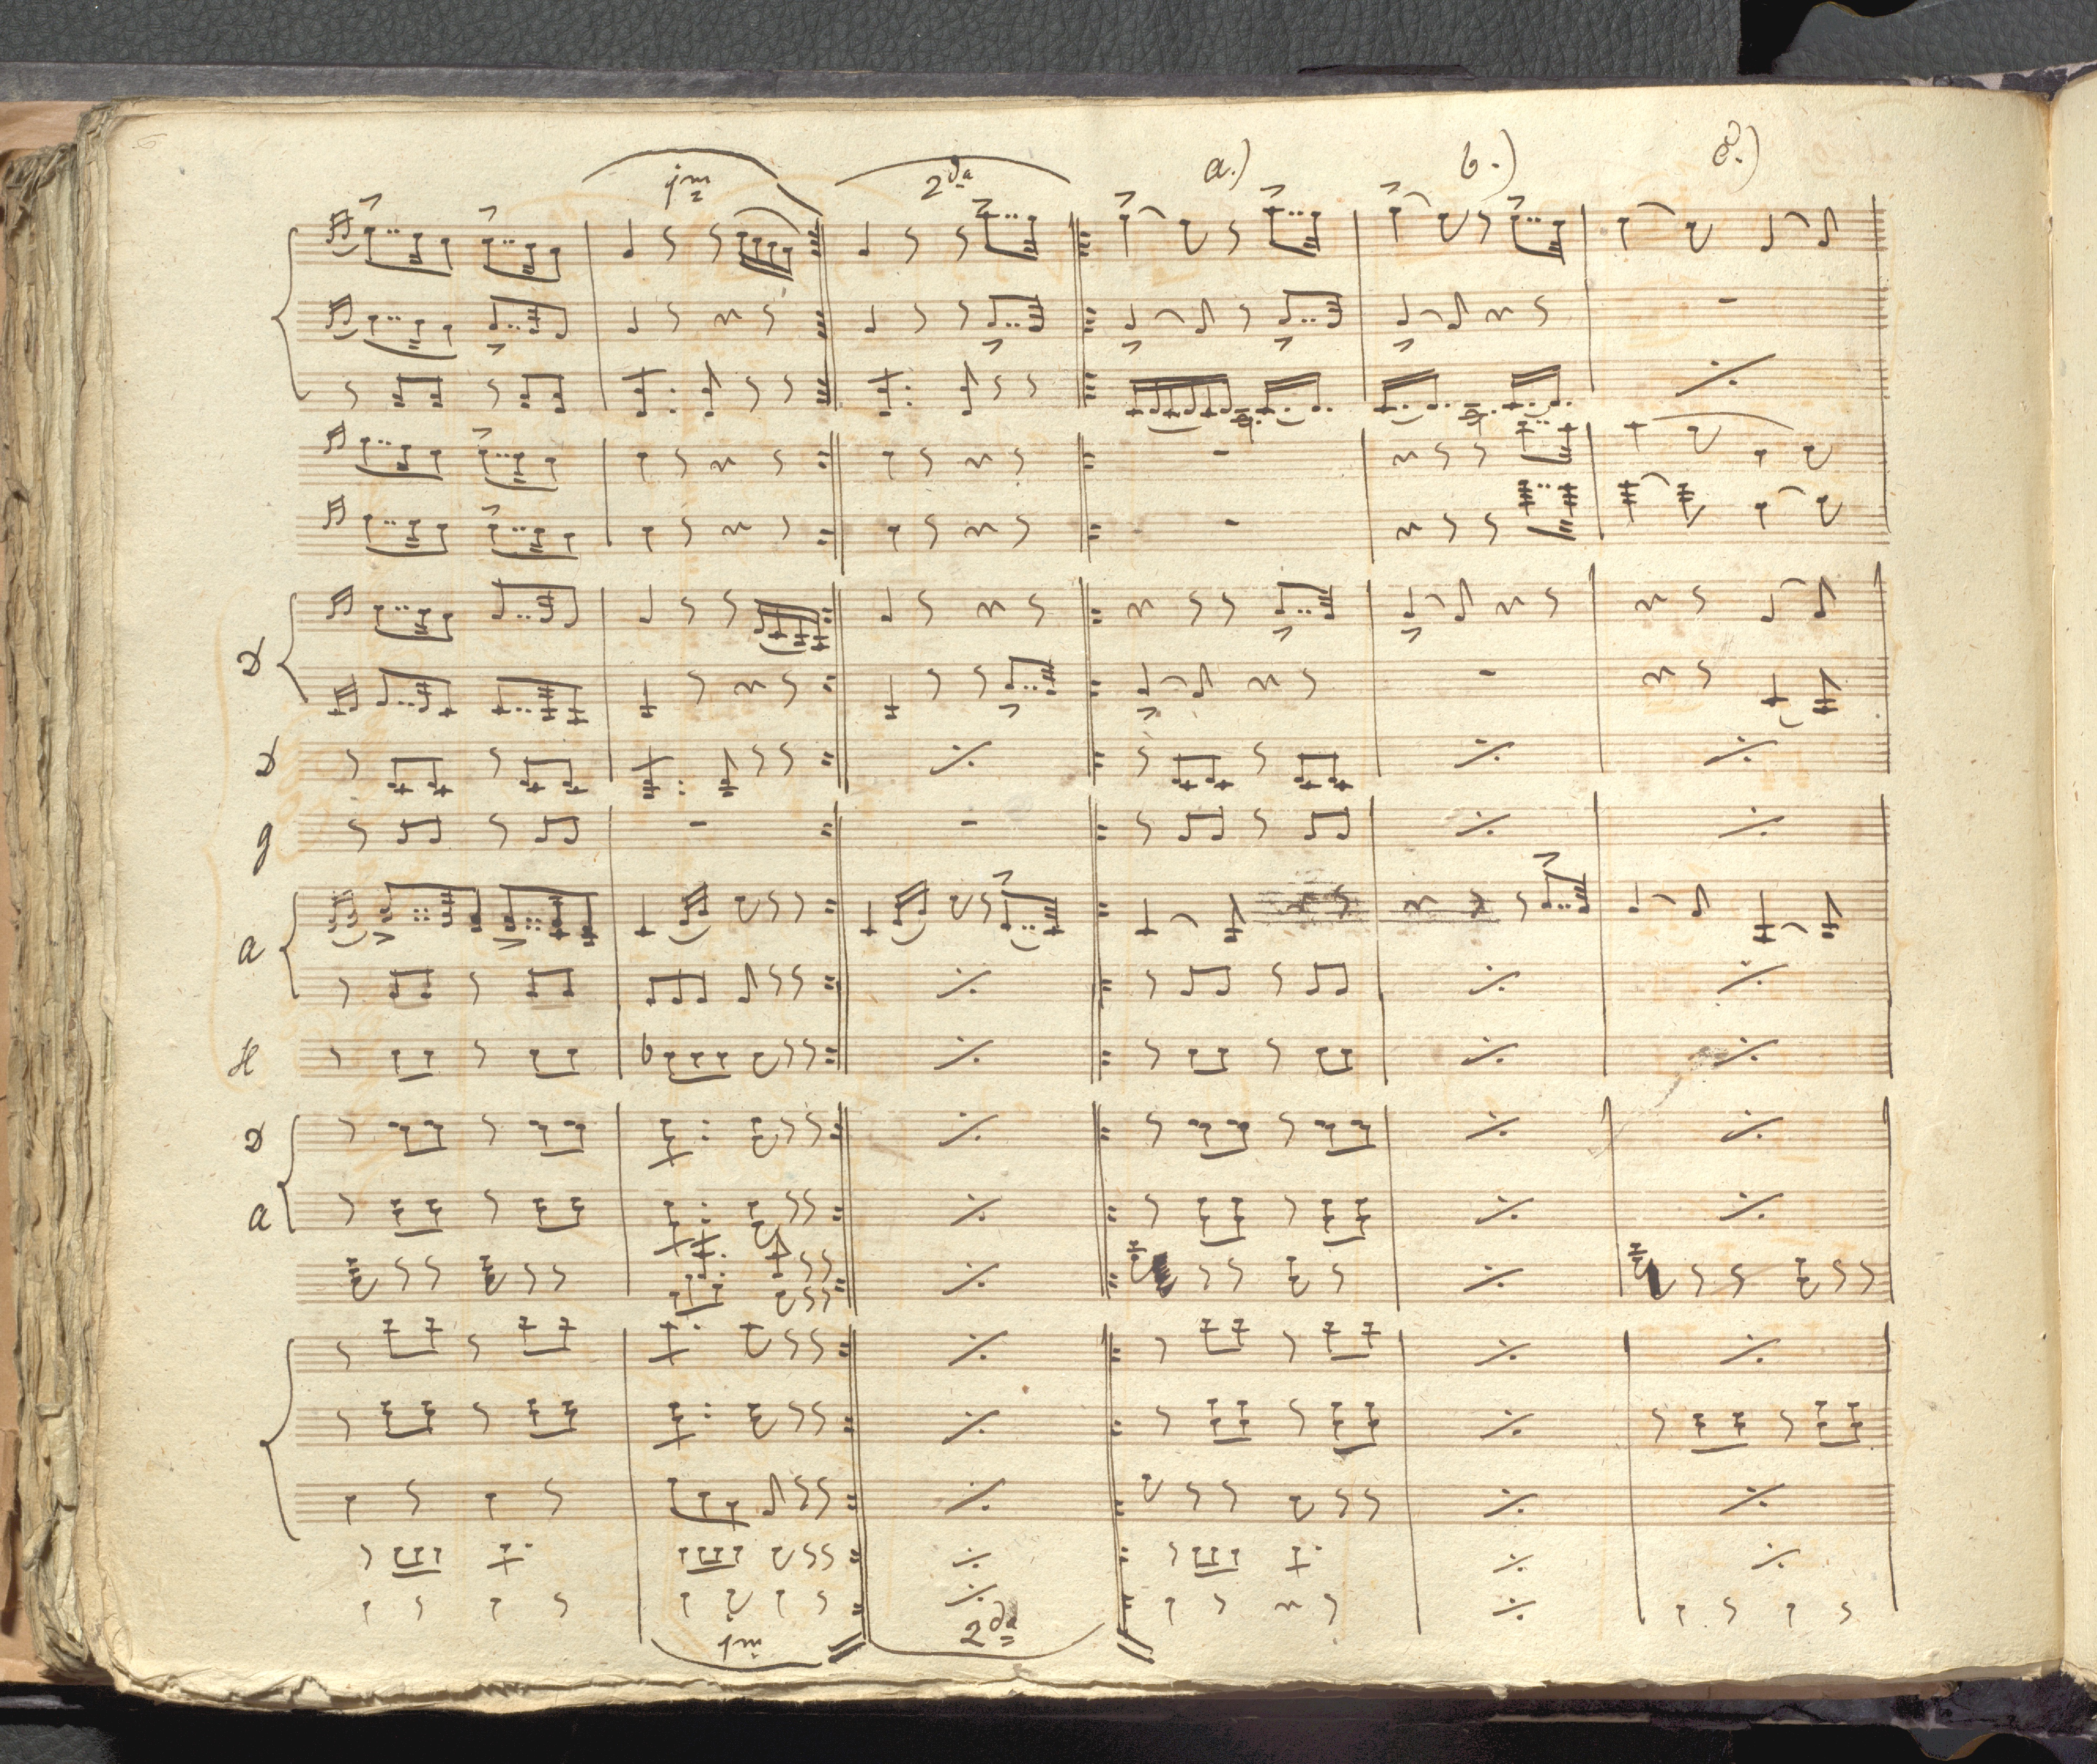 1mͫ 2da a.) b.)
D
D
g
a
H
D
a
1m 2da